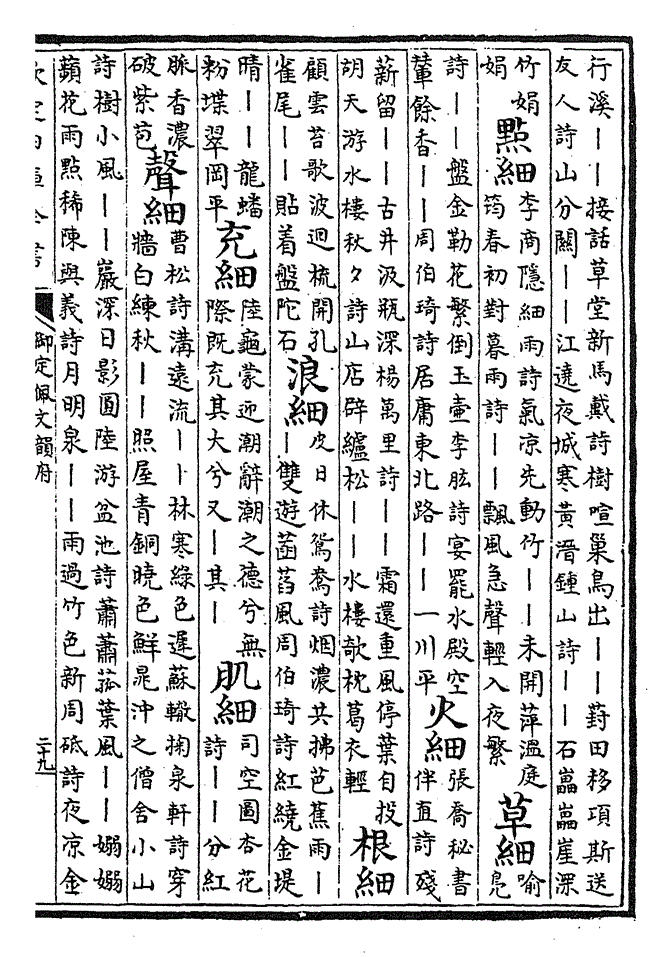 行溪｜｜接話草堂新馬戴詩樹喧巢鳥出｜｜葑田移項斯送
友人詩山分關｜｜江遶夜城寒黃溍鍾山詩｜｜石嵓嵓崖深
竹娟
娟
點細
李商隱細雨詩氣凉先動竹｜｜未開萍溫庭
筠春初對暮雨詩｜｜飄風急聲輕入夜繁
草細
喻
鳧
詩｜｜盤金勒花繁倒玉壺李肱詩宴罷水殿空
輦餘香｜｜周伯琦詩居庸東北路｜｜一川平
火細
張喬秘書
伴直詩殘
薪留｜｜古井汲瓶深楊萬里詩｜｜霜還重風停葉自投
胡天游水樓秋夕詩山店辟纑松｜｜水樓欹枕葛衣輕
根細
顧雲苔歌波迴梳開孔
雀尾｜｜貼着盤陀石
浪細
皮日休鴛鴦詩烟濃共拂芭蕉雨｜
｜雙遊菡萏風周伯琦詩紅繞金堤
晴｜｜龍蟠
粉堞翠岡平
充細
陸龜蒙迎潮辭潮之德兮無
際既充其大兮又｜其｜
肌細
司空圖杏花
詩｜｜分紅
脈香濃
破紫苞
聲細
曹松詩溝遠流｜｜林寒綠色遲蘇轍掬泉軒詩穿
牆白練秋｜｜照屋青銅曉色鮮晁沖之僧舍小山
詩樹小風｜｜巖深日影圓陸游盆池詩蕭蕭菰葉風｜｜嫋嫋
蘋花雨點稀陳與義詩月明泉｜｜雨過竹色新周砥詩夜凉金
欽定四庫全書
御定佩文韻府
二十九